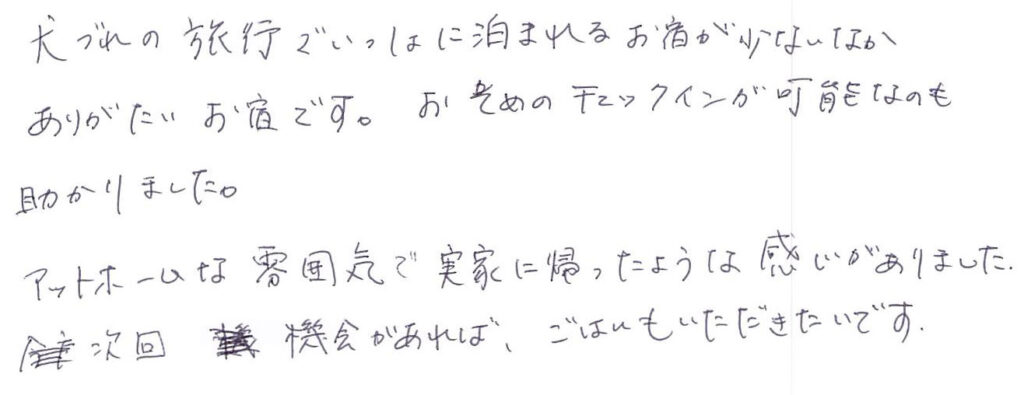 犬づれの旅行でいっしょに泊まれるお宿が少ないなか
ありがたいお宿です。おそめのチェックインが可能なのも
助かりました。
アットホームな雰囲気で実家に帰ったような感じがありました.
次回 機会があれば、ごはんもいただきたいです.